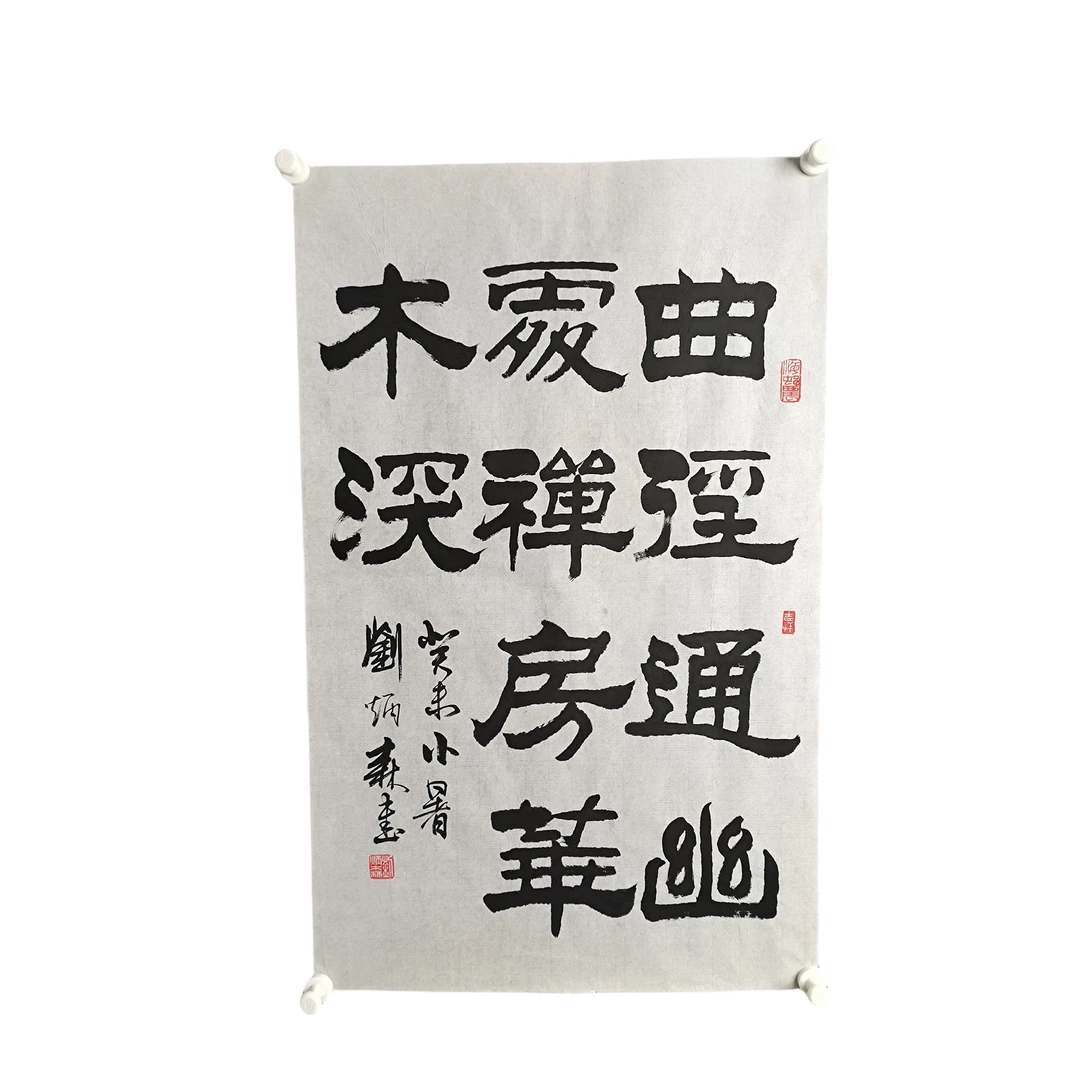 曲徑通幽
處禪房華
木深
癸未小暑
劉炳森書